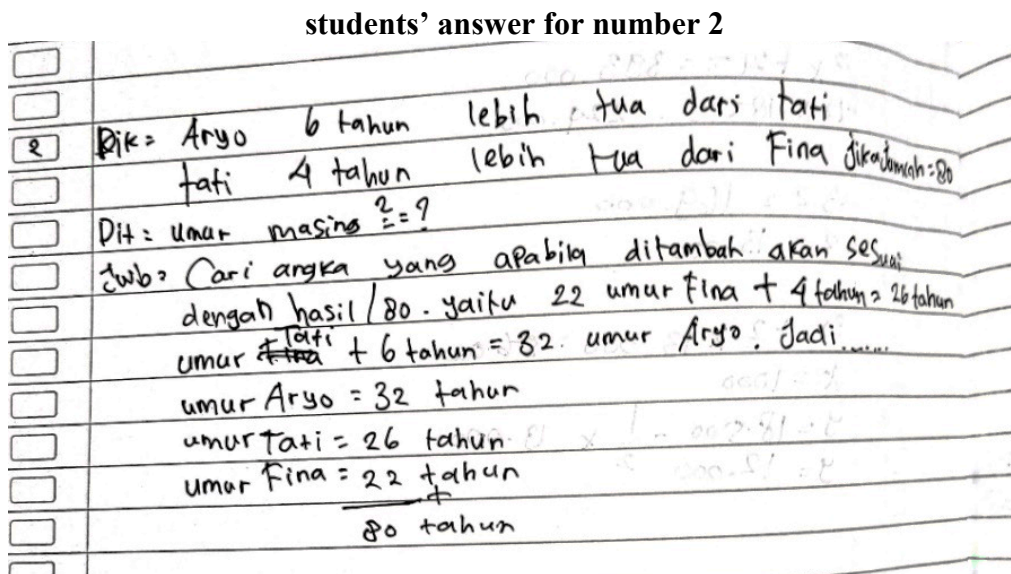 students’ answer for number 2
2 Dik= Aryo 6 tahun lebih tua dari tati
tati 4 tahun lebih tua dari Fina Jika Jumlah = 80
Dit : umur masing 2 = ?
Jwb= Cari angka yang apabila ditambah akan sesuai
dengan hasil / 80 . yaitu 22 umur fina + 4 tahun = 26 tahun
umur Tati + 6 tahun = 32 . umur Aryo . Jadi......
umur Aryo = 32 tahun
umur Tati = 26 tahun
umur Fina = 22 tahun
+
80 tahun